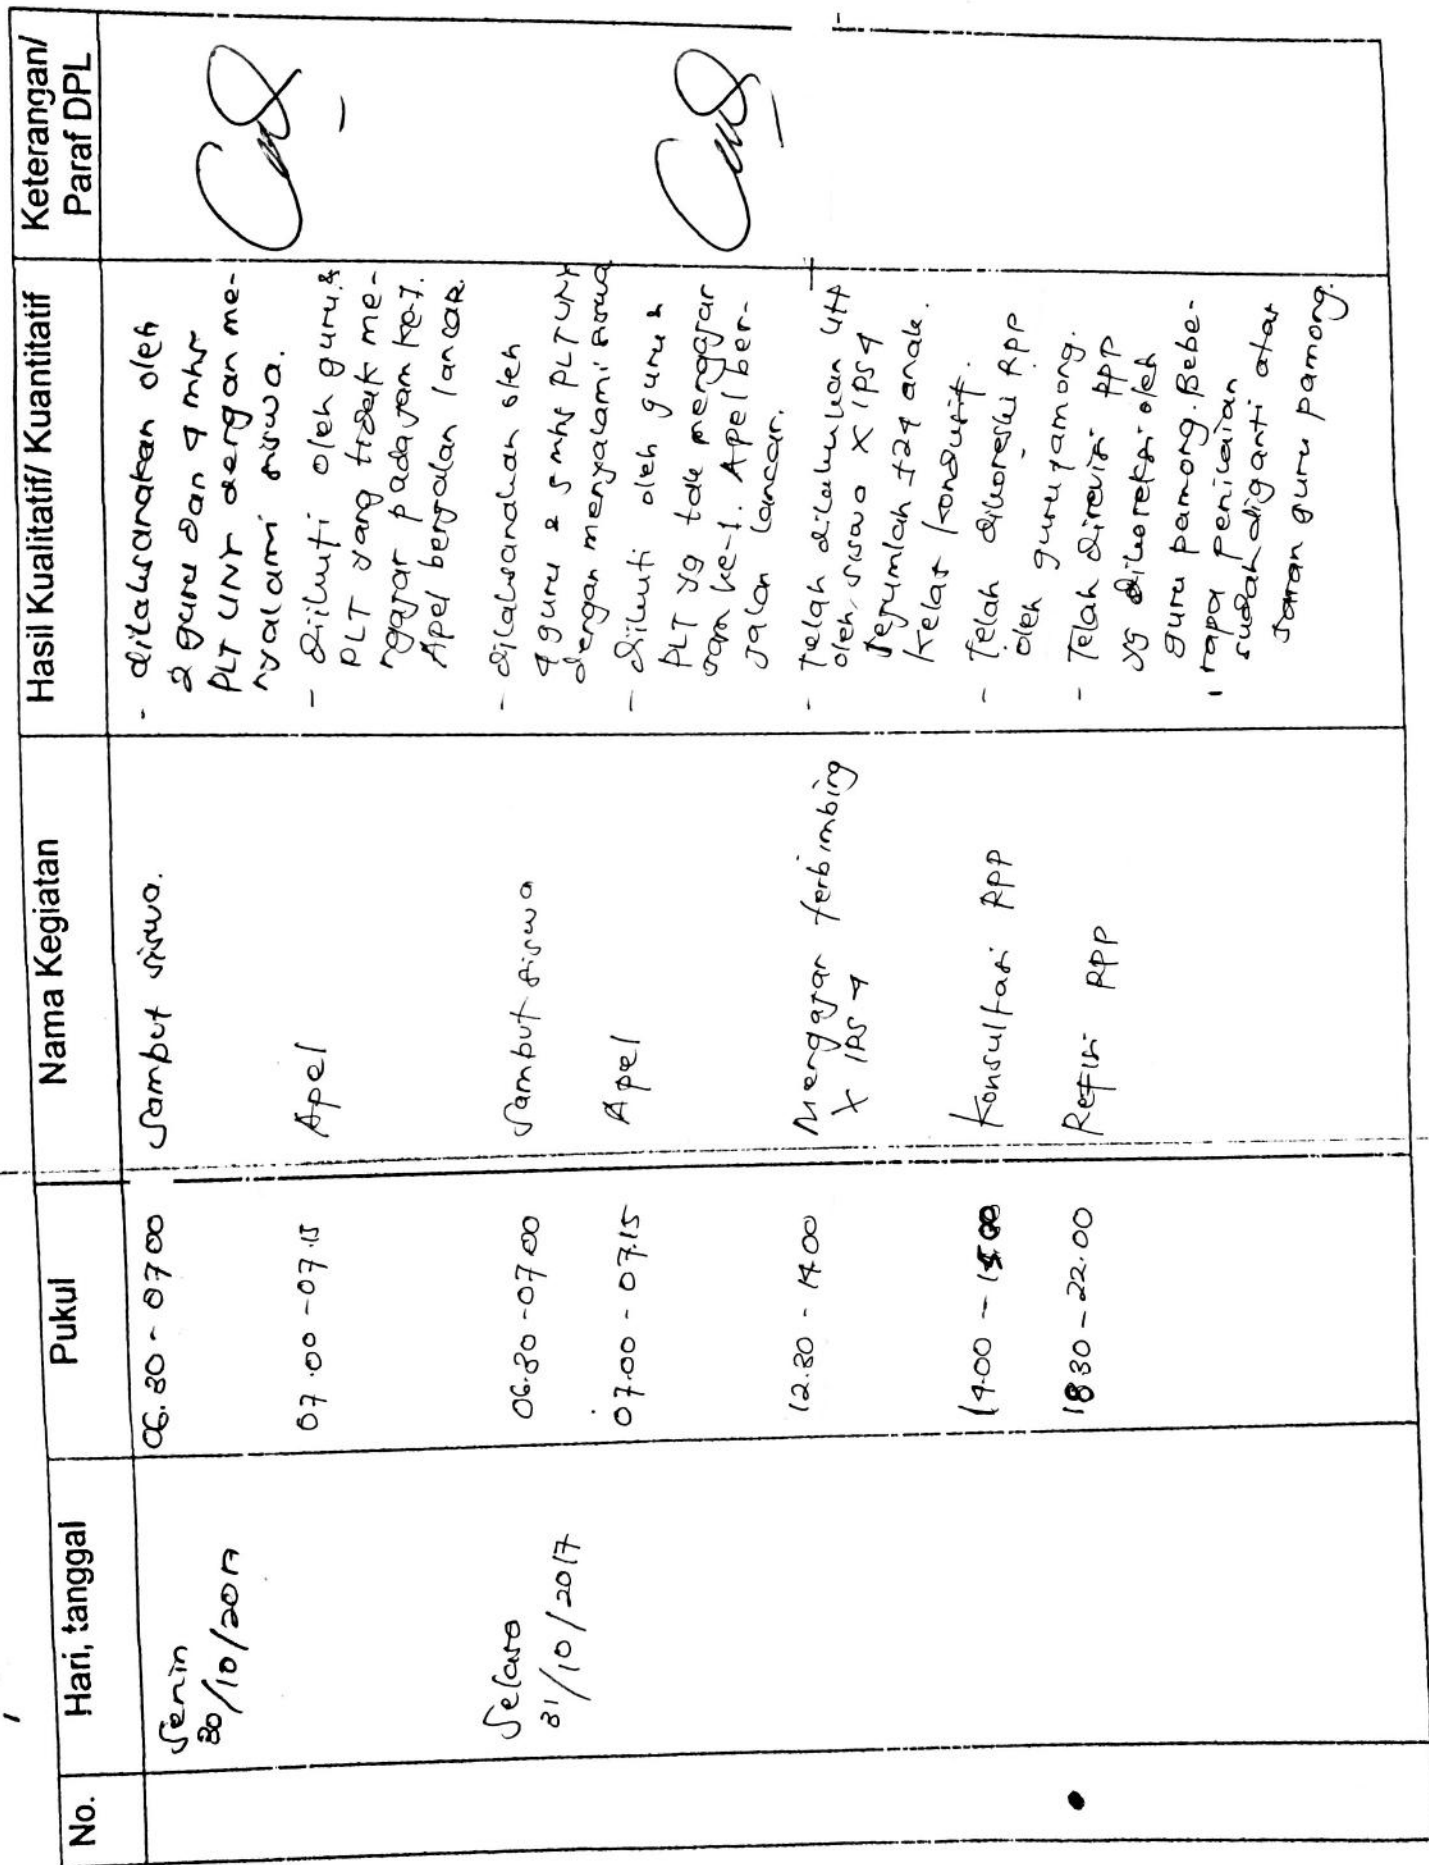 No.
Hari, tanggal
Pukul
Nama Kegiatan
Hasil Kualitatif/ Kuantitatif
Keterangan/
Paraf DPL
Senin
30/10/2017
06.30 - 07 00
Sambut siswa.
- dilaksanakan oleh
2 guru dan 4 mhs
PLT UNY dengan me-
nyalami siswa.
07.00 - 07.15
Apel
- Diikuti oleh guru &
PLT yang tidak me-
ngajar pada jam ke-1.
Apel berjalan lancar.
Selasa
31/10/2017
06.30 - 07.00
Sambut siswa
- dilaksanakan oleh
4 guru & 5 mhs PLT UNY
dengan menyalami siswa
07.00 - 07.15
Apel
- Diikuti oleh guru &
PLT yg tdk mengajar
jam ke-1. Apel ber-
jalan lancar.
12.30 - 14.00
Mengajar terbimbing
X IPS 4
- Telah dilakukan
oleh siswa X IPS 4
sejumlah ±24 anak.
Kelas kondusif.
14.00 - 15.00
Konsultasi RPP
- Telah dikoreksi RPP
oleh guru pamong.
18 30 - 22.00
Refisi RPP
- Telah direvisi RPP
yg dikoreksi oleh
guru pamong. Bebe-
rapa penilaian
sudah diganti atas
saran guru pamong.